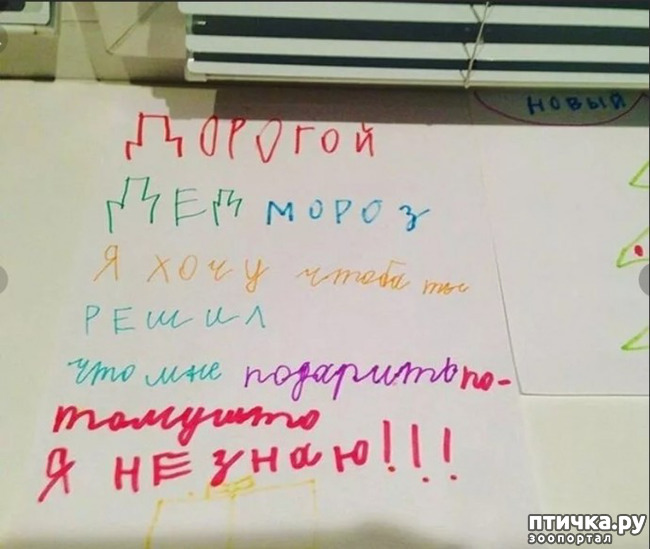 новый
Дорогой
Дед мороз
я хочу чтоба ты
решил
что мне подарить по-
томушто
я не знаю!!!
птичка.ру
зоопортал